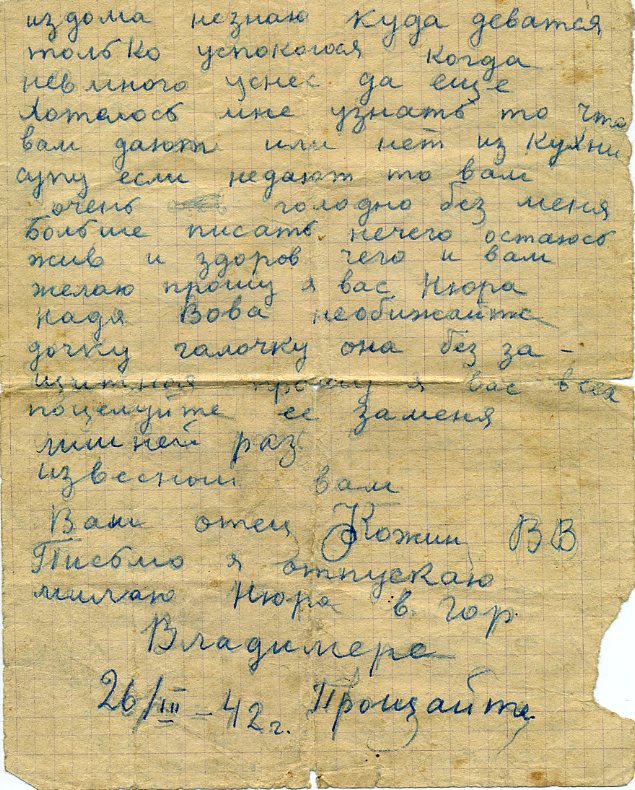 издома незнаю куда деватся
только успокоюся когда
невмного уснеш да еще
хотелось мне узнать то что
вам дают или нет из кухни
супу если недают то вам
очень голодно без меня
больше писать нечего остаюсь
жив и здоров чего и вам
желаю прошу я вас Нюра
надя Вова необижайте
дочку галочку она без за-
щитная прошу я вас всех
поцелуйте ее заменя
лишней раз
известной вам
Ваш отец Кожин ВВ
Писмо я отпускаю
милаю Нюра в гор.
Владимере
26/III-42г. Прощайте